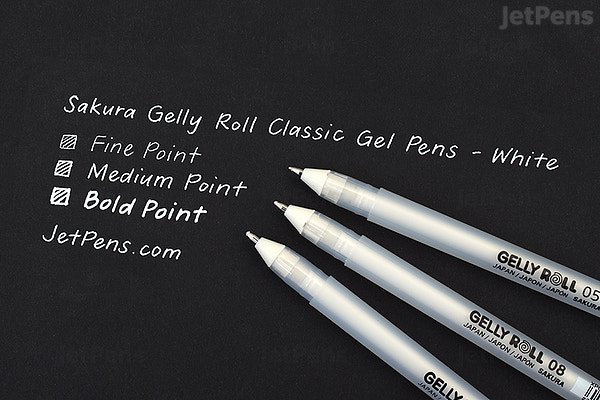 JetPens
Sakura Gelly Roll Classic Gel Pens - White
Fine Point
Medium Point
Bold Point
JetPens.com
GELLY ROLL 05
JAPAN/JAPON/JAPÓN SAKURA
GELLY ROLL 08
JAPAN/JAPON/JAPÓN SAKURA
GELLY